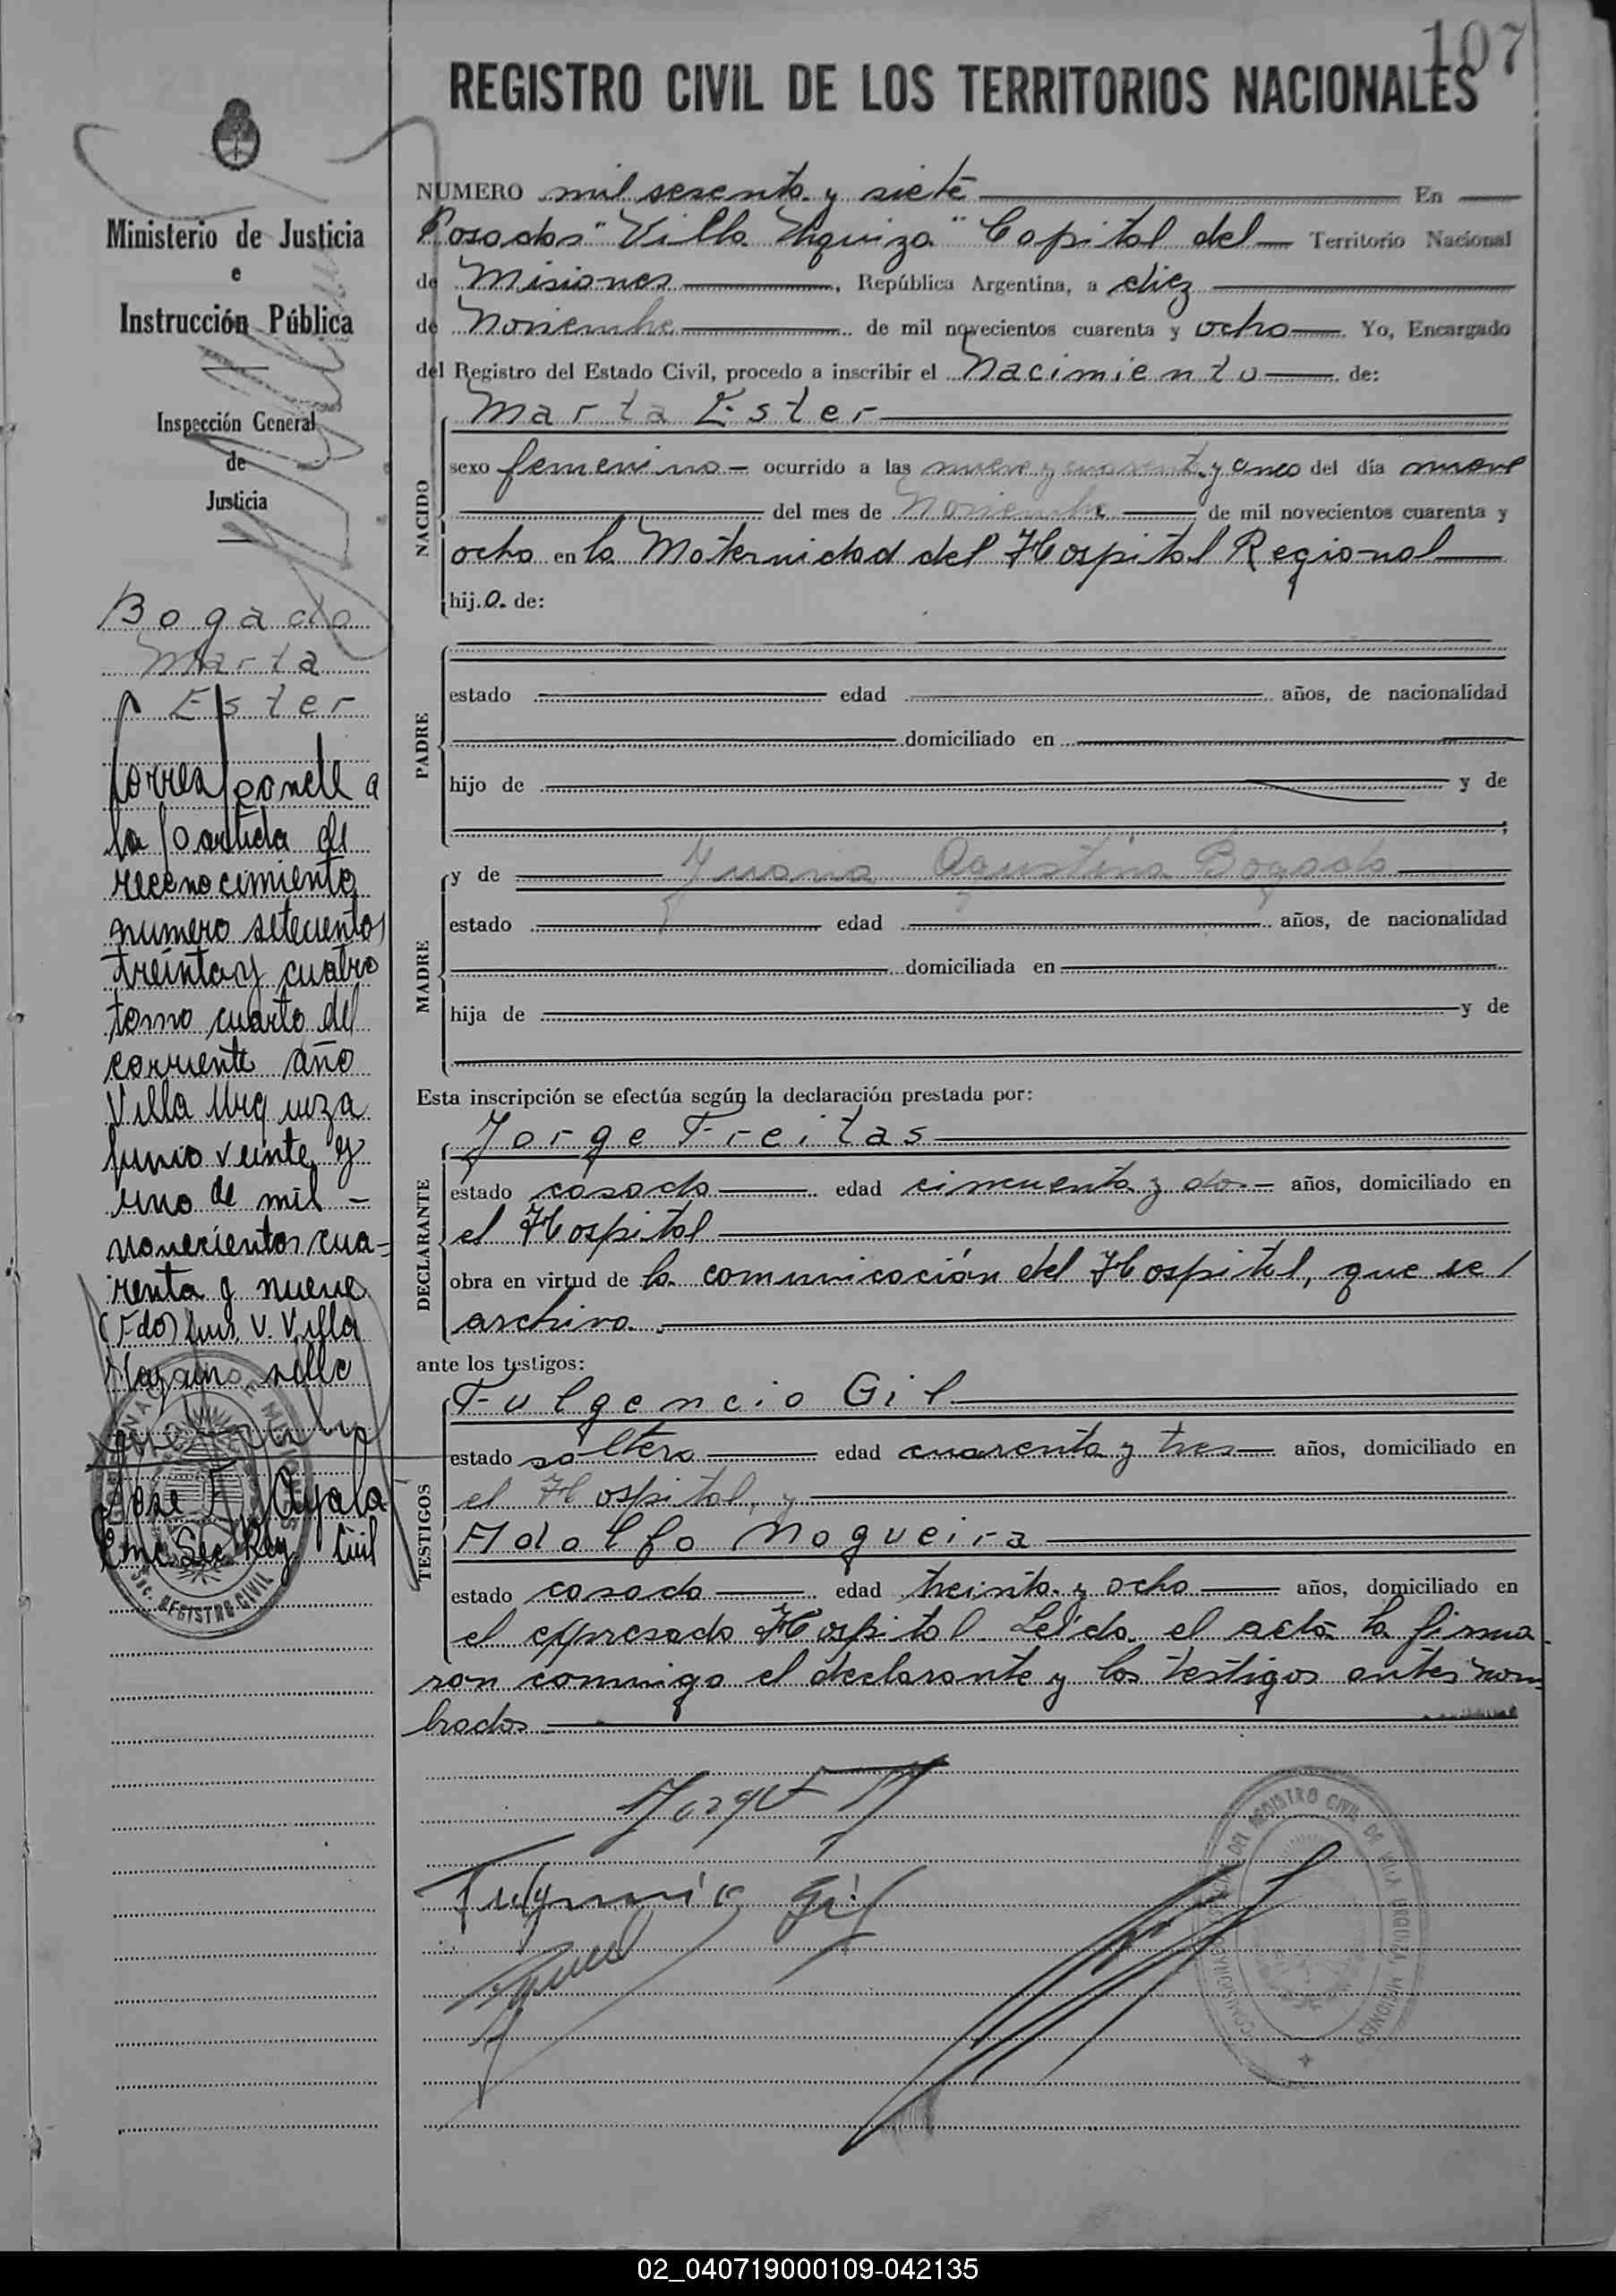 107
REGISTRO CIVIL DE LOS TERRITORIOS NACIONALES
Ministerio de Justicia
e
Instrucción Pública
Inspección General
de
Justicia
Bogado
Marta
Ester
Corresponde a
la partida de
reconocimiento
numero setecientos
treinta y cuatro
tomo cuarto del
corriente año
Villa Urquiza
Junio veinte y
uno de mil -
novecientos cua-
renta y nueve
(Fdo) Luis V. Villa
sello
Jose F. Ayala
Enc. Sec. Reg. Civil
SEC. REGISTRO CIVIL
NUMERO mil sesenta y siete En
Posadas "Villa Urquiza" Capital del Territorio Nacional
de Misiones, República Argentina, a diez
de Noviembre de mil novecientos cuarenta y ocho. Yo, Encargado
del Registro del Estado Civil, procedo a inscribir el Nacimiento de:
NACIDO
Marta Ester
sexo femenino - ocurrido a las nueve y cuarenta y cinco del día nueve
del mes de Noviembre de mil novecientos cuarenta y
ocho en la Maternidad del Hospital Regional
hij.a. de:
PADRE
estado edad años, de nacionalidad
domiciliado en
hijo de y de
;
MADRE
y de Juana Agustina Bogado
estado edad años, de nacionalidad
domiciliada en
hija de y de
Esta inscripción se efectúa según la declaración prestada por:
DECLARANTE
Jorge Freitas
estado casado edad cincuenta y dos - años, domiciliado en
el Hospital
obra en virtud de la comunicación del Hospital, que se /
archiva.
ante los testigos:
TESTIGOS
Fulgencio Gil
estado soltero edad cuarenta y tres años, domiciliado en
el Hospital, y
Adolfo Nogueira
estado casado edad treinta y ocho años, domiciliado en
el expresado Hospital. Leída el acta la firma-
ron conmigo el declarante y los testigos antes nom-
brados
Jorge F
Fulgencio Gil
REGISTRO CIVIL DE VILLA URQUIZA, MISIONES
02_040719000109-042135